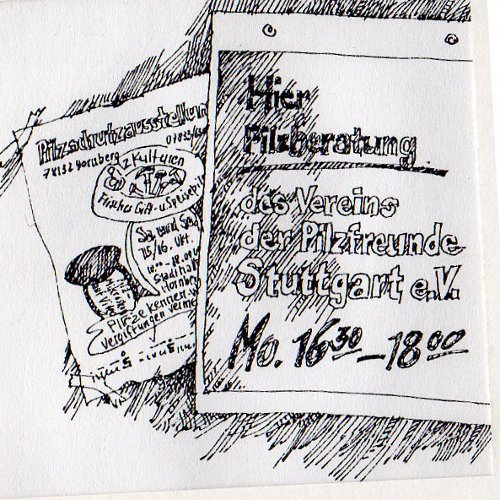 Pilzschutzausstellun
78132 Hornberg
Kulturen
Frisches Gift- u Speisepil
Sa und So
15/16. Okt.
Stadthal
Hornberg
Pilze kennen
Vergiftungen verme
Hier
Pilzberatung
des Vereins
der Pilzfreunde
Stuttgart e.V.
Mo. 16³⁰–18⁰⁰